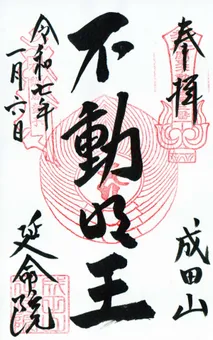 奉拝
成田山
不動明王
令和七年
一月六日
延命院